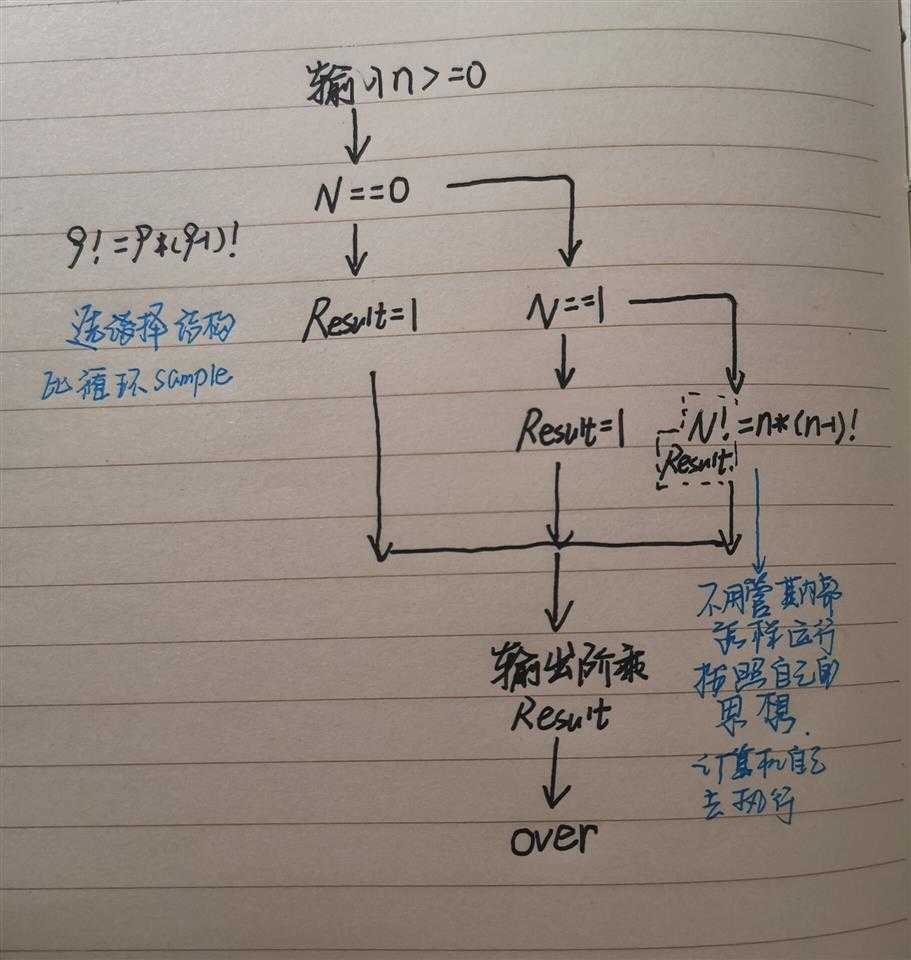 输入n>=0
N==0
9!=9*(9-1)!
Result=1
N==1
选择结构
比循环sample
Result=1
N!=n*(n-1)!
Result
不用管其内部
怎样运行
按照自己的
思想.
计算机自己
去执行
输出阶乘
Result
over